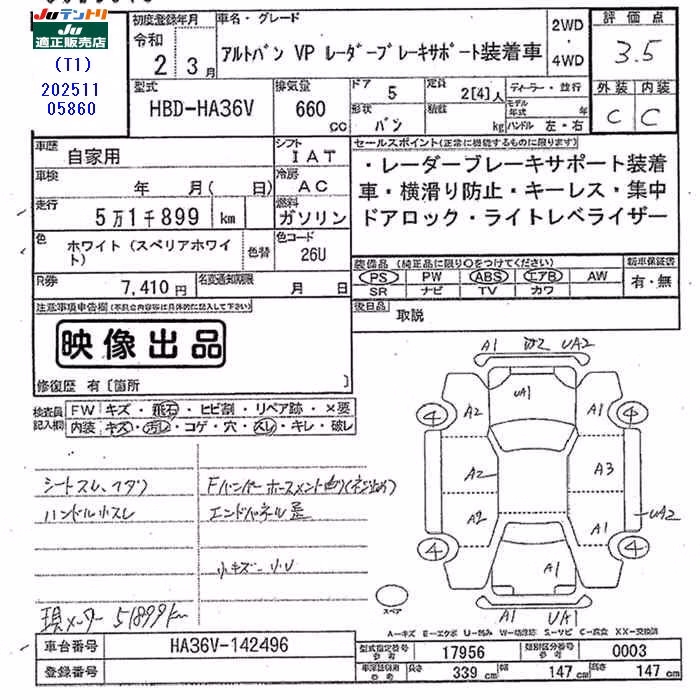 Juテントリ
Ju
適正販売店
(T1)
202511
05860
初度登録年月
令和
2 3月
車名・グレード
アルトバン VP レーダーブレーキサポート装着車
2WD
・
4WD
評価点
3.5
型式
HBD-HA36V
排気量
660
CC
ドア
5
定員
2[4]人
ディーラー・並行
形状
バン
積載
kg
モデル年式 年
ハンドル 左・右
外装 内装
C C
車歴
自家用
シフト
IAT
車検
年 月( 日)
冷房
AC
走行
5万1千899 km
燃料
ガソリン
色
ホワイト(スペリアホワイト)
色替
色コード
26U
R券
7,410円
名変通知期限
月 日
セールスポイント(正常に機能するものに限ります)
・レーダーブレーキサポート装着
車・横滑り防止・キーレス・集中
ドアロック・ライトレベライザー
装備品(純正品に限り○をつけてください)
PS PW ABS エアB AW
SR ナビ TV カワ
新車保証書
有・無
後日品
取説
注意事項申告欄(不具合内容等は具体的に記入して下さい)
映像出品
修復歴 有〔箇所 〕
検査員
記入欄
FW キズ・飛石・ヒビ割・リペア跡・×要
内装 キズ・汚レ・コゲ・穴・スレ・キレ・破レ
シートスレ、
ハンドル小スレ
Fバンパーホースメント曲り
エンドパネル歪
小キズ
現メーター 51899km
A1 UA2
UA1
A2 A1
4 4
A2 A3
A2 A1
UA2
4 4
A1
A1 UA1
スペア
A-キズ E-エクボ U-凹み W-補修跡 S-サビ C-腐食 XX-交換済
車台番号
HA36V-142496
登録番号
型式指定番号
参考
17956
類別区分番号
参考
0003
参考
長さ
339 cm
幅
147 cm
高さ
147 cm